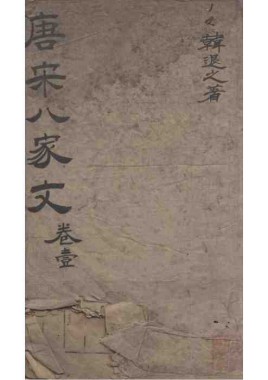 韓退之著
唐宋八家文
卷壹